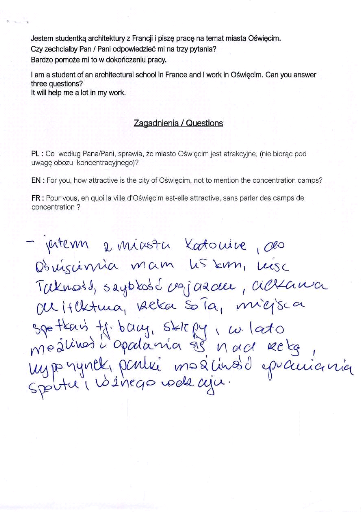 Jestem studentką architektury z Francji i piszę pracę na temat miasta Oświęcim.
Czy zechciałby Pan / Pani odpowiedzieć mi na trzy pytania?
Bardzo pomoże mi to w dokończeniu pracy.
I am a student of an architectural school in France and I work in Oświęcim. Can you answer
three questions?
It will help me a lot in my work.
Zagadnienia / Questions
PL : Co według Pana/Pani, sprawia, że miasto Oświęcim jest atrakcyjne, (nie biorąc pod
uwagę obozu koncentracyjnego)?
EN : For you, how attractive is the city of Oświęcim, not to mention the concentration camps?
FR : Pour vous, en quoi la ville d'Oświęcim est-elle attractive, sans parler des camps de
concentration ?
- jestem z miasta Katowice, do
Oświęcimia mam km, więc
szybkość dojazdu, ciekawa
rzeka Soła, miejsca
spotkań tj. bary, sklepy, w lato
możliwość opalania się nad rzeką,
wypoczynek, parki możliwość uprawiania
sportu różnego rodzaju.